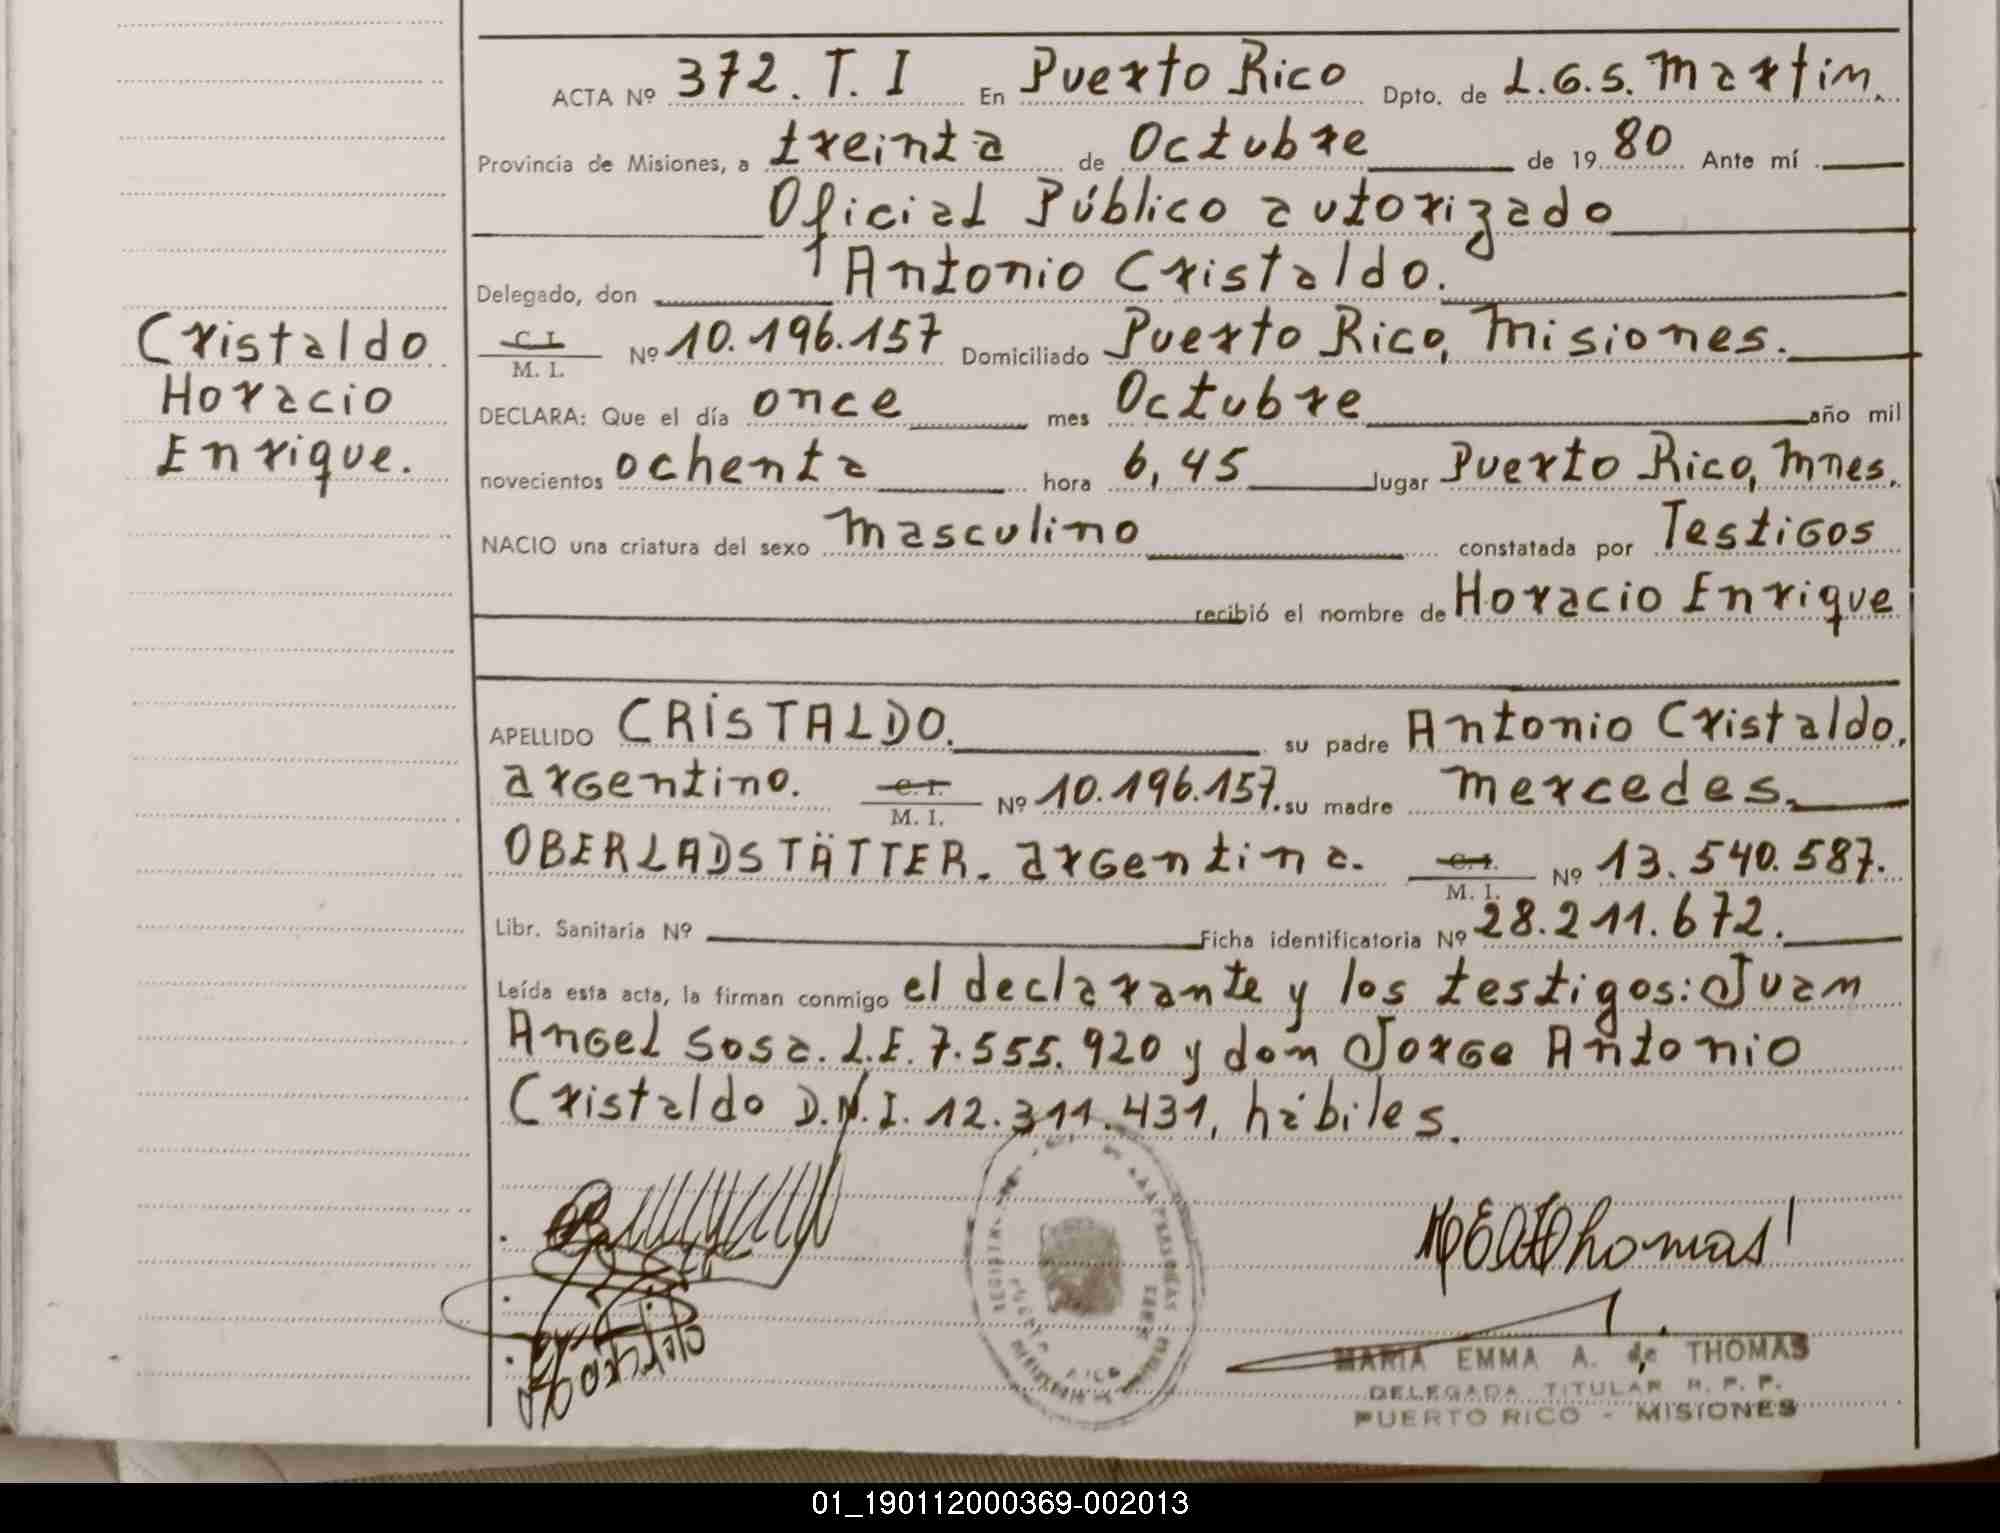 ACTA Nº 372. T. I En Puerto Rico Dpto. de L.G.S. Martin.
Provincia de Misiones, a treinta de Octubre de 19 80 Ante mí
Oficial Público autorizado
Delegado, don Antonio Cristaldo.
C. I.
M. I. Nº 10.196.157 Domiciliado Puerto Rico, Misiones.
Cristaldo
Horacio
Enrique.
DECLARA: Que el día once mes Octubre año mil
novecientos ochenta hora 6,45 lugar Puerto Rico, Mnes.
NACIO una criatura del sexo masculino constatada por Testigos
recibió el nombre de Horacio Enrique
APELLIDO CRISTALDO. su padre Antonio Cristaldo.
argentino. C. I. M. I. Nº 10.196.157. su madre Mercedes.
OBERLADSTÄTTER. argentina. C. I. M. I. Nº 13.540.587.
Libr. Sanitaria Nº Ficha identificatoria Nº 28.211.672.
Leída esta acta, la firman conmigo el declarante y los testigos: Juan
Angel Sosa. L.E. 7.555.920 y don Jorge Antonio
Cristaldo D.N.I. 12.311.431, hábiles.
Thomas
MARIA EMMA A. de THOMAS
DELEGADA TITULAR R. P. P.
PUERTO RICO - MISIONES
01_190112000369-002013